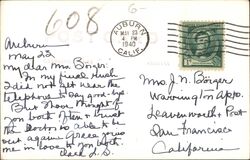 608 6-
AUBURN
MAY 23
4 PM
1940
CALIF.
Auburn
May 23
My dear Mrs. Börger:
In my final rush
I did not get near the
telephone to say good-bye
But I have thought of
you both often & trust
the Doctor is able to be
out again. Grace joins
me in love to you both
Mrs. J. N. Börger
Warrington Apts.
Leavenworth & Post
San Francisco
California